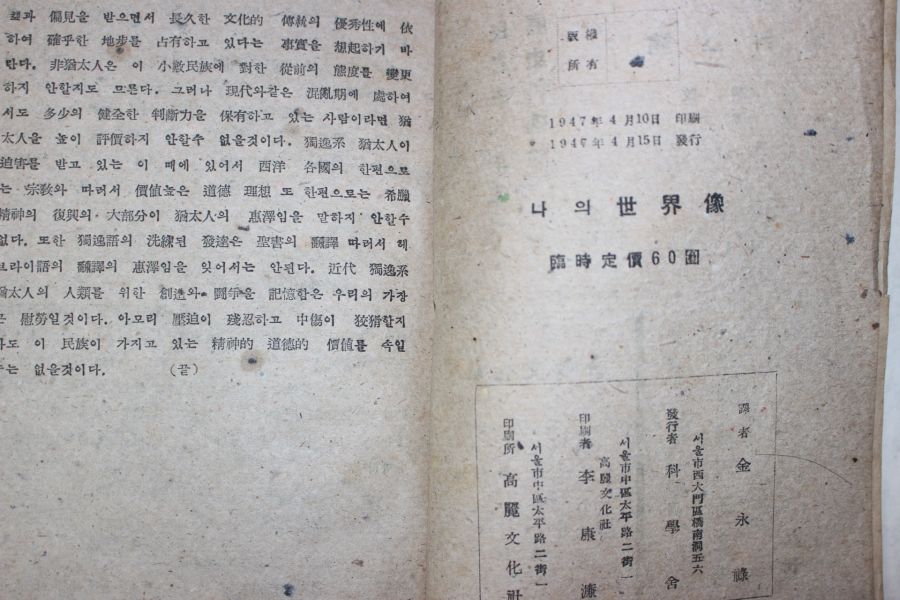 했과 偏見을 받으면서 長久한 文化的 傳統의 優秀性에 依
하여 確乎한 地步를 占有하고 있다는 事實을 想起하기 바
란다. 非猶太人은 이 小數民族에 對한 從前의 態度를 變更
하지 안할지도 모른다. 그러나 現代와같은 混亂期에 處하여
서도 多少의 健全한 判斷力을 保有하고 있는 사람이라면 猶
太人을 높이 評價하지 안할수 없을것이다. 獨逸系 猶太人이
迫害를 받고 있는 이 때에 있어서 西洋 各國의 한편으로
는 宗敎와 따러서 價値높은 道德 理想 또 한편으로는 希臘
精神의 復興의 大部分이 猶太人의 惠澤임을 말하지 안할수
없다. 또한 獨逸語의 洗練된 發達은 聖書의 飜譯 따러서 헤
브라이語의 飜譯의 惠澤임을 잊어서는 안된다. 近代 獨逸系
猶太人의 人類를 위한 創造와 鬪爭을 記憶함은 우리의 가장
큰 慰勞일것이다. 아모리 壓迫이 殘忍하고 中傷이 狡猾할지
라도 이 民族이 가지고 있는 精神的 道德的 價値를 속일
수는 없을것이다. (끝)
版權
所有
1947年 4月10日 印刷
1947年 4月15日 發行
나의 世界像
臨時定價60圓
譯者 金永祿
서울市西大門區橋南洞五六
發行者 科學舍
서울市中區太平路二街一
高麗文化社
印刷者 李康濂
서울市中區太平路二街一
印刷所 高麗文化社